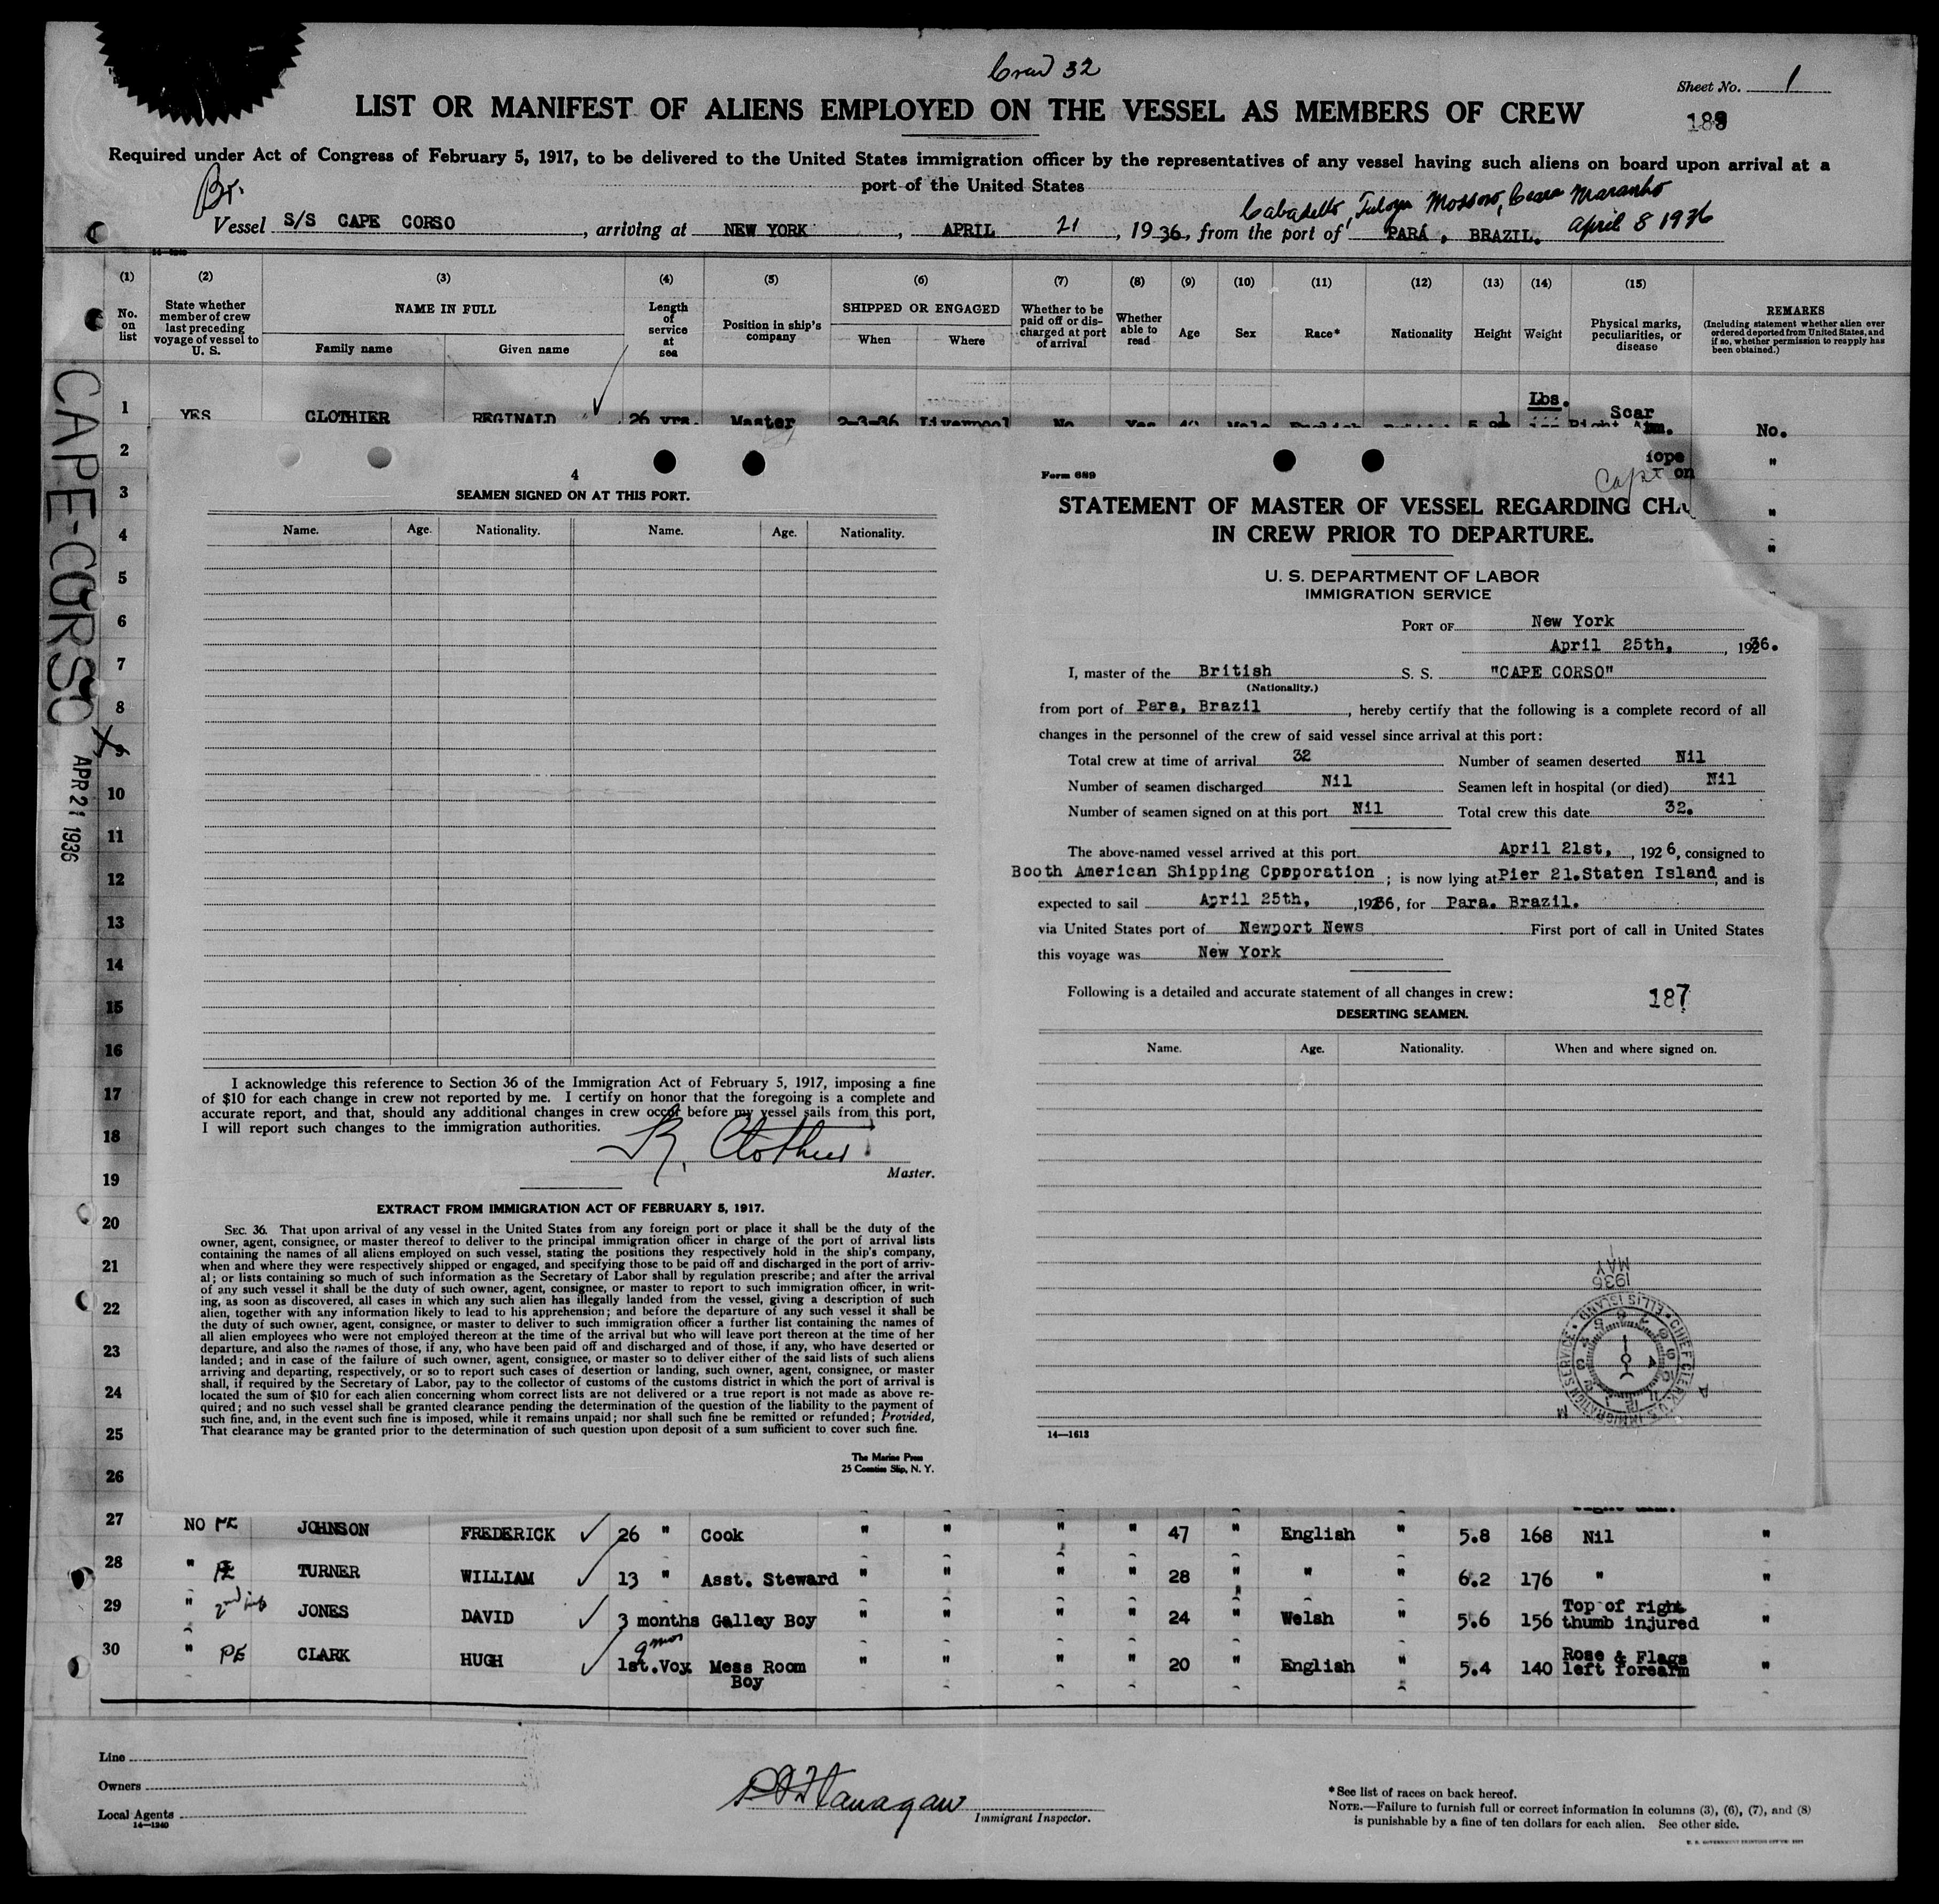 Crew 32
Sheet No. 1
LIST OR MANIFEST OF ALIENS EMPLOYED ON THE VESSEL AS MEMBERS OF CREW
Required under Act of Congress of February 5, 1917, to be delivered to the United States immigration officer by the representatives of any vessel having such aliens on board upon arrival at a
port of the United States
Br.
Cabadello, Mossoro, Ceara Maranho
Vessel S/S CAPE CORSO, arriving at NEW YORK, APRIL 21, 1936, from the port of PARÁ, BRAZIL. April 8 1936
(1) (2) (3) (4) (5) (6) (7) (8) (9) (10) (11) (12) (13) (14) (15)
No. on list
State whether member of crew last preceding voyage of vessel to U. S.
NAME IN FULL
Family name Given name
Length of service at sea
Position in ship's company
SHIPPED OR ENGAGED
When Where
Whether to be paid off or discharged at port of arrival
Whether able to read
Age Sex Race* Nationality Height Weight
Physical marks, peculiarities, or disease
REMARKS
(Including statement whether alien ever ordered deported from United States, and if so, whether permission to reapply has been obtained.)
Lbs.
1 YES CLOTHIER REGINALD 26 yrs. Master 2-3-36 Liverpool No Yes Male English British Scar Right Arm. No.
CAPE-CORSO
APR 21 1936
2 "
3 "
4 "
5
6
7
8
9
10
11
12
13
14
15
16
17
18
19
20
21
22
23
24
25
26
4
SEAMEN SIGNED ON AT THIS PORT.
Name. Age. Nationality. Name. Age. Nationality.
I acknowledge this reference to Section 36 of the Immigration Act of February 5, 1917, imposing a fine
of $10 for each change in crew not reported by me. I certify on honor that the foregoing is a complete and
accurate report, and that, should any additional changes in crew occur before my vessel sails from this port,
I will report such changes to the immigration authorities.
R. Clothier
Master.
EXTRACT FROM IMMIGRATION ACT OF FEBRUARY 5, 1917.
SEC. 36. That upon arrival of any vessel in the United States from any foreign port or place it shall be the duty of the
owner, agent, consignee, or master thereof to deliver to the principal immigration officer in charge of the port of arrival lists
containing the names of all aliens employed on such vessel, stating the positions they respectively hold in the ship's company,
when and where they were respectively shipped or engaged, and specifying those to be paid off and discharged in the port of arriv-
al; or lists containing so much of such information as the Secretary of Labor shall by regulation prescribe; and after the arrival
of any such vessel it shall be the duty of such owner, agent, consignee, or master to report to such immigration officer, in writ-
ing, as soon as discovered, all cases in which any such alien has illegally landed from the vessel, giving a description of such
alien, together with any information likely to lead to his apprehension; and before the departure of any such vessel it shall be
the duty of such owner, agent, consignee, or master to deliver to such immigration officer a further list containing the names of
all alien employees who were not employed thereon at the time of the arrival but who will leave port thereon at the time of her
departure, and also the names of those, if any, who have been paid off and discharged and of those, if any, who have deserted or
landed; and in case of the failure of such owner, agent, consignee, or master so to deliver either of the said lists of such aliens
arriving and departing, respectively, or so to report such cases of desertion or landing, such owner, agent, consignee, or master
shall, if required by the Secretary of Labor, pay to the collector of customs of the customs district in which the port of arrival is
located the sum of $10 for each alien concerning whom correct lists are not delivered or a true report is not made as above re-
quired; and no such vessel shall be granted clearance pending the determination of the question of the liability to the payment of
such fine, and, in the event such fine is imposed, while it remains unpaid; nor shall such fine be remitted or refunded; Provided,
That clearance may be granted prior to the determination of such question upon deposit of a sum sufficient to cover such fine.
The Marine Press
25 Coenties Slip, N. Y.
Form 689
Capt
STATEMENT OF MASTER OF VESSEL REGARDING CHA
IN CREW PRIOR TO DEPARTURE.
U. S. DEPARTMENT OF LABOR
IMMIGRATION SERVICE
PORT OF New York
April 25th, 1936.
I, master of the British S. S. "CAPE CORSO"
(Nationality.)
from port of Para, Brazil, hereby certify that the following is a complete record of all
changes in the personnel of the crew of said vessel since arrival at this port:
Total crew at time of arrival 32 Number of seamen deserted Nil
Number of seamen discharged Nil Seamen left in hospital (or died) Nil
Number of seamen signed on at this port Nil Total crew this date 32.
The above-named vessel arrived at this port April 21st, 1926, consigned to
Booth American Shipping Corporation; is now lying at Pier 21.Staten Island, and is
expected to sail April 25th, 1936, for Para. Brazil.
via United States port of Newport News First port of call in United States
this voyage was New York
Following is a detailed and accurate statement of all changes in crew: 187
DESERTING SEAMEN.
Name. Age. Nationality. When and where signed on.
1936
MAY
CHIEF CLERK, U.S. IMMIGRATION SERVICE • ELLIS ISLAND
14—1613
27 NO PE JOHNSON FREDERICK 26 " Cook " " " " 47 " English " 5.8 168 Nil "
28 " PE TURNER WILLIAM 13 " Asst. Steward " " " " 28 " " " 6.2 176 " "
29 " JONES DAVID 3 months Galley Boy " " " " 24 " Welsh " 5.6 156 Top of right thumb injured "
9 mos
30 " PE CLARK HUGH 1st.Voy. Mess Room Boy " " " " 20 " English " 5.4 140 Rose & Flags left forearm "
Line
Owners
Local Agents
14—1240
Flanagan
Immigrant Inspector.
*See list of races on back hereof.
NOTE.—Failure to furnish full or correct information in columns (3), (6), (7), and (8)
is punishable by a fine of ten dollars for each alien. See other side.